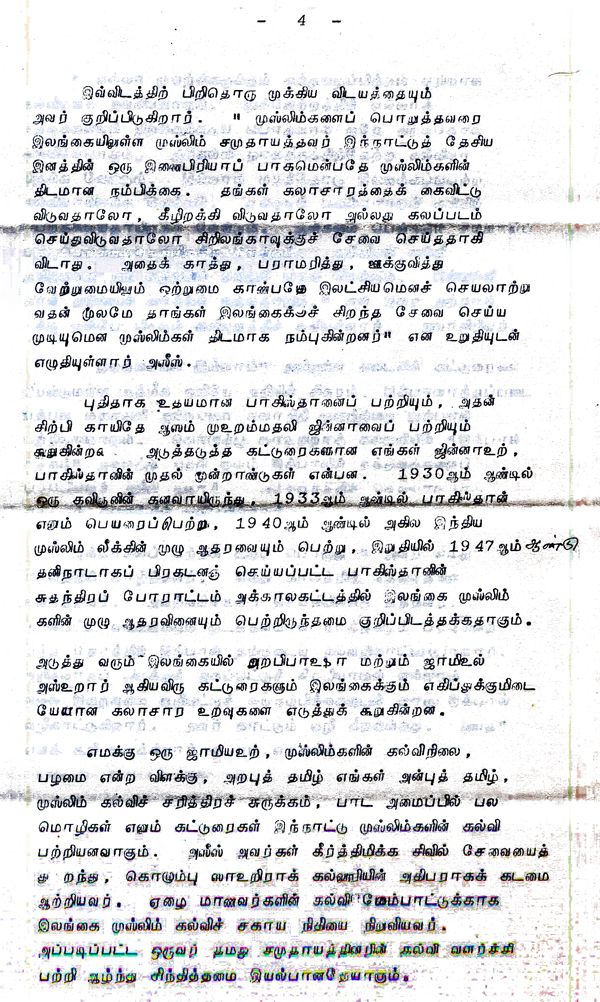 - 4 -
இவ்விடத்திற் பிறிதொரு முக்கிய விடயத்தையும்
அவர் குறிப்பிடுகிறார். " முஸ்லிம்களைப் பொறுத்தவரை
இலங்கையிலுள்ள முஸ்லிம் சமுதாயத்தவர் இந்நாட்டுத் தேசிய
இனத்தின் ஒரு இணைபிரியாப் பாகமென்பதே முஸ்லிம்களின்
திடமான நம்பிக்கை. தங்கள் கலாசாரத்தைக் கைவிட்டு
விடுவதாலோ, கீழிறக்கி விடுவதாலோ அல்லது கலப்படம்
செய்துவிடுவதாலோ சிறிலங்காவுக்குச் சேவை செய்ததாகி
விடாது. அதைக் காத்து, பராமரித்து, ஊக்குவித்து
வேற்றுமையிலும் ஒற்றுமை காண்பதே இலட்சியமெனச் செயலாற்று
வதன் மூலமே தாங்கள் இலங்கைக்குச் சிறந்த சேவை செய்ய
முடியுமென முஸ்லிம்கள் திடமாக நம்புகின்றனர்" என உறுதியுடன்
எழுதியுள்ளார் அஸீஸ்.
புதிதாக உதயமான பாகிஸ்தானைப் பற்றியும், அதன்
சிற்பி காயிதே ஆஸம் முஹம்மதலி ஜின்னாவைப் பற்றியும்
கூறுகின்றன அடுத்தடுத்த கட்டுரைகளான எங்கள் ஜின்னாஹ்,
பாகிஸ்தானின் முதல் மூன்றாண்டுகள் என்பன. 1930ஆம் ஆண்டில்
ஒரு கவிஞனின் கனவாயிருந்து, 1933ஆம் ஆண்டில் பாகிஸ்தான்
எனும் பெயரைப்பெற்று, 1940ஆம் ஆண்டில் அகில இந்திய
முஸ்லிம் லீக்கின் முழு ஆதரவையும் பெற்று, இறுதியில் 1947ஆம் ஆண்டு
தனிநாடாகப் பிரகடனஞ் செய்யப்பட்ட பாகிஸ்தானின்
சுதந்திரப் போராட்டம் அக்காலகட்டத்தில் இலங்கை முஸ்லிம்
களின் முழு ஆதரவினையும் பெற்றிருந்தமை குறிப்பிடத்தக்கதாகும்.
அடுத்து வரும் இலங்கையில் அறபிபாஷா மற்றும் ஜாமிஉல்
அஸ்ஹார் ஆகியவிரு கட்டுரைகளும் இலங்கைக்கும் எகிப்துக்குமிடை
யேயான கலாசார உறவுகளை எடுத்துக் கூறுகின்றன.
எமக்கு ஒரு ஜாமியஹ், முஸ்லிம்களின் கல்விநிலை,
பழமை என்ற விளக்கு, அறபுத் தமிழ் எங்கள் அன்புத் தமிழ்,
முஸ்லிம் கல்விச் சரித்திரச் சுருக்கம், பாட அமைப்பில் பல
மொழிகள் எனும் கட்டுரைகள் இந்நாட்டு முஸ்லிம்களின் கல்வி
பற்றியனவாகும். அஸீஸ் அவர்கள் கீர்த்திமிக்க சிவில் சேவையைத்
து றந்து, கொழும்பு ஸாஹிறாக் கல்லூரியின் அதிபராகக் கடமை
ஆற்றியவர். ஏழை மாணவர்களின் கல்வி மேம்பாட்டுக்காக
இலங்கை முஸ்லிம் கல்விச் சகாய நிதியை நிறுவியவர்.
அப்படிப்பட்ட ஒருவர் தமது சமுதாயத்தினரின் கல்வி வளர்ச்சி
பற்றி ஆழ்ந்து சிந்தித்தமை இயல்பானதேயாகும்.